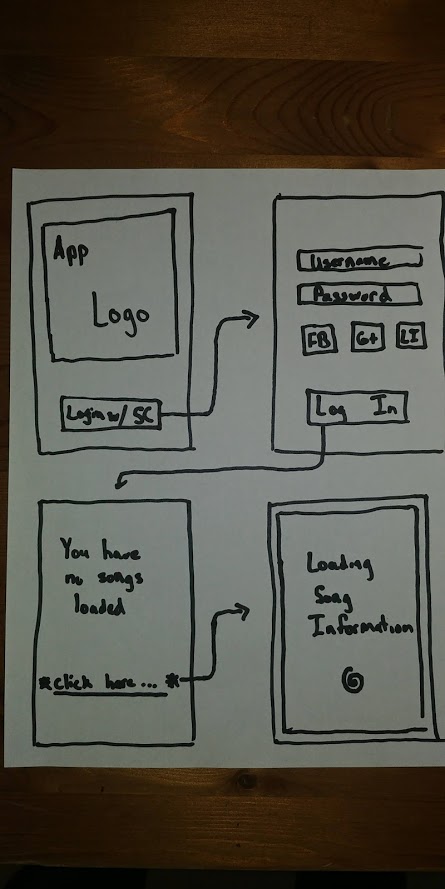 App
Logo
Login w/ SC
Username
Password
FB
G+
LI
Log In
You have
no songs
loaded
*click here...*
Loading
Song
Information